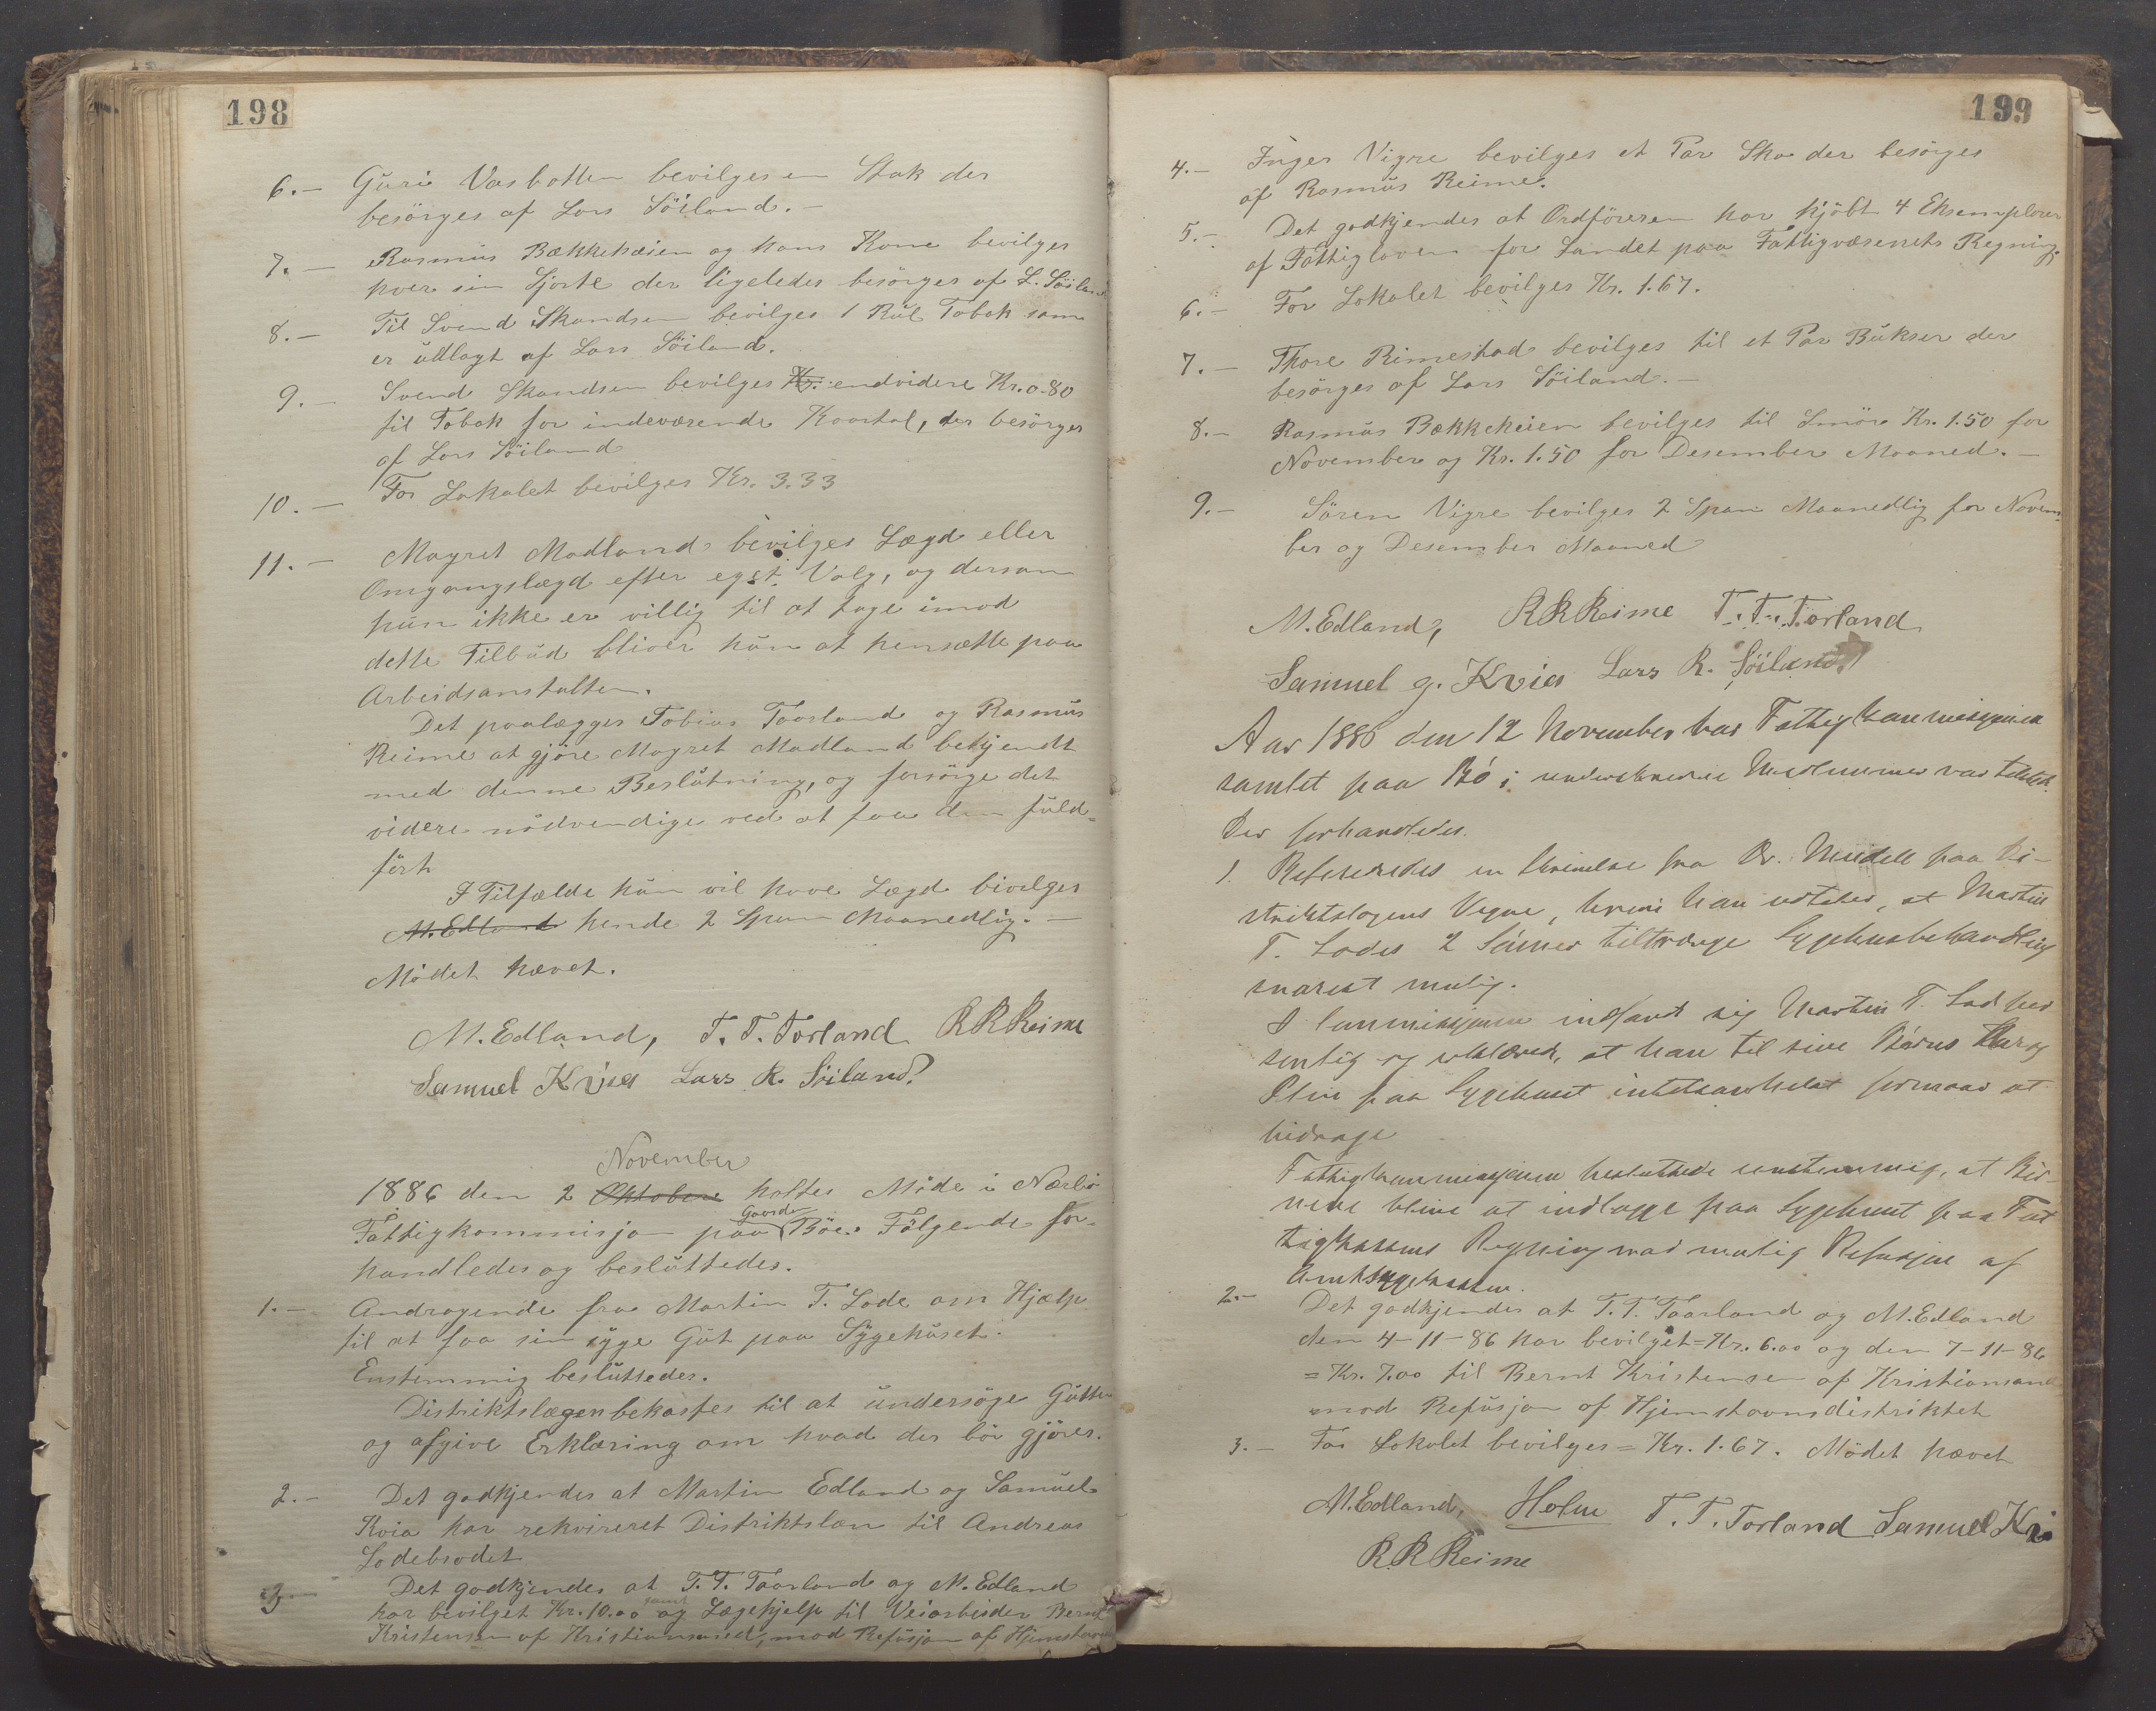 198
6.- Guri Vasbotten bevilges en Stak der
besörges af Lars Söiland.-
7.- Rasmus Bækkeheien og hans Kone bevilges
hver sin Sjorte der ligeledes besörges af L. Söiland
8.- Til Svend Skandsen bevilges 1 Rul Tobak som
er udlagt af Lars Söiland.
9.- Svend Skandsen bevilges Kr. endvidere Kr. 0-80
til Tobak for indeværende Kvartal, der besörges
af Lars Söiland
10.- For Lokalet bevilges Kr. 3.33
11.- Magret Madland bevilges Lægd eller
Omgangslægd efter eget Valg, og dersom
hun ikke er villig til at tage imod
dette Tilbud bliver hun at hensætte paa
Arbeidsanstalten.
Det paalægges Tobias Taarland og Rasmus
Reime at gjöre Magret Madland bekjendt
med denne Beslutning, og forsörge det
videre nödvendige ved at faa den fuld-
fört
I Tilfælde hun vil have Lægd bivilges
M. Edland hende 2 Span Maanedlig.-
Mödet hævet.
M. Edland, T. T. Torland R R Reime
Samuel Kvia Lars R. Söiland
November
1886 den 2 Oktober holtes Möde i Nærbö
Gaarden
Fattigkommisjon paa Böe. Fölgende for-
handledes og besluttedes.
1.- Andragende fra Martin T. Lode om Hjælp
til at faa sin syge Gut paa Sygehuset.
Enstemmig besluttedes.
Distriktslægen bekostes til at undersöge Gutten
og afgive Erklæring om hvad der bör gjöres.
2.- Det godkjendes at Martin Edland og Samuel
Kvia har rekvireret Distriktslæn til Andreas
Lodebrodet
3.- Det godkjendes at T. T. Taarland og M. Edland
samt
har bevilget Kr. 10.00 og Lægehjelp til Veiarbeider Bernt
Kristensen af Kristiansand, mod Refusjon af Hjemstavns
199
4.- Inger Vigre bevilges et Par Sko der besörges
af Rasmus Reime.
5.- Det godkjendes at Ordföreren har kjöbt 4 Eksemplarer
af Fattigloven for Landet paa Fattigvæsenets Regning.
6.- For Lokalet bevilges Kr. 1.67.
7.- Thore Rimestad bevilges til et Par Bukser der
besörges af Lars Söiland.-
8.- Rasmus Bækkeheien bevilges til Smör Kr. 1.50 for
November og Kr. 1.50 for Desember Maaned.-
9.- Sören Vigre bevilges 2 Span Maanedlig for Novem-
ber og Desember Maaned
M. Edland, R R Reime T. T. Torland
Samuel g. Kvia Lars R. Söiland
Aar 1886 den 12 November var Fattigkommisjonen
samlet paa Bö i Medlemmer var tilstede.
Der forhandledes.
1. Refereredes en Skrivelse fra Dr. paa Di-
striktslægens Vegne, hvori han udtaler, at Martin
T. Lodes 2 Sönner tiltrænge Sygehusbehandling
snarest mulig.
I Kommissjonen indfandt sig Martin T. Lode per
sonlig og erklærede, at han til sine Börns Kur og
Pleie paa Sygehuset intetsomhelst formaar at
bidrage
Fattigkommisjonen besluttede enstemmig, at Bör-
nene blive at indlægge paa Sygehuset paa Fat
tigkassens Regning mod mulig Refusjon af
Amtssygekassen.
2.- Det godkjendes at T. T. Taarland og M. Edland
den 4-11-86 har bevilget = Kr. 6.00 og den 7-11-86
= Kr. 7.00 til Bernt Kristensen af Kristiansand
mod Refusjon af Hjemstavnsdistriktet
3.- For Lokalet bevilges = Kr. 1.67. Mödet hævet
M. Edland, Holm T. T. Torland Samuel Kvi
R R Reime